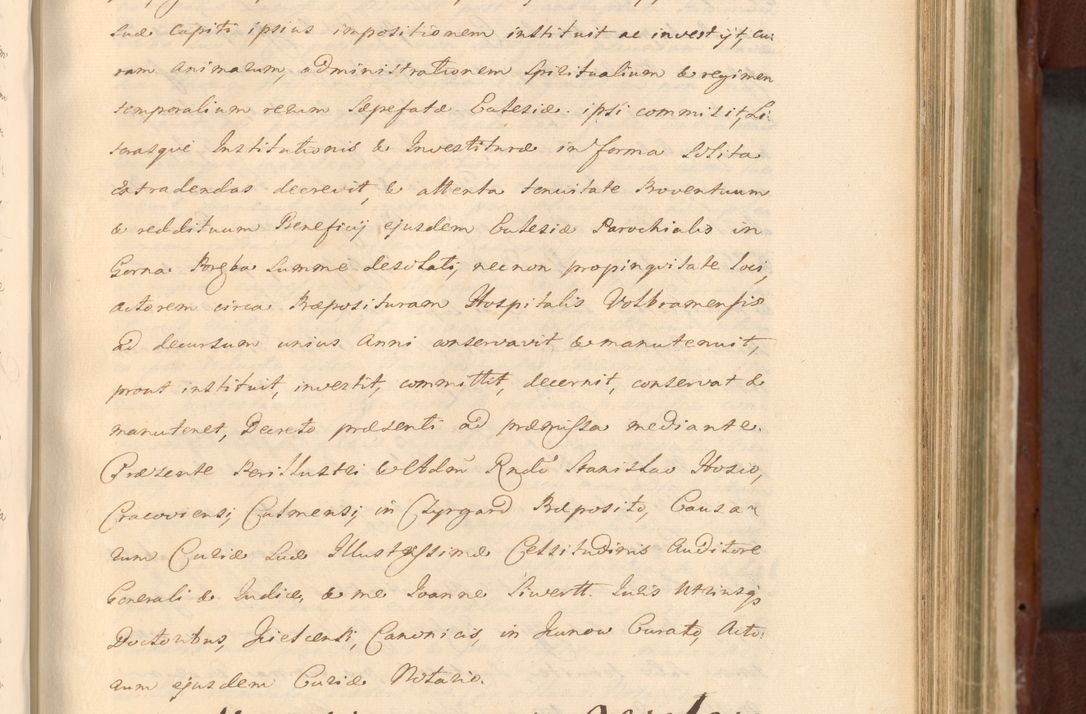 suæ capiti ipsius impositionem instituit ac investijt, cu-
ram animarum, administrationem spiritualium & regimen
temporalium rerum sæpefatæ Eccłesiæ ipsi commisit, Li-
terasque Institutionis & Investituræ in forma solita
extradendas decrevit, & attenta tenuitate Proventuum
& reddituum Beneficij ejusdem Eccłesiæ Parochialis in
Gorna Poręba summe desolati, necnon propinqvitate loci,
actorem circa Præposituram Hospitalis Volbramensis
ad decursum unius Anni conservavit & manutenuit,
prout instituit, investit, committit, decernit, conservat &
manutenet, Decreto præsenti ad præmissa mediante.
Præsente Perillustri & Adm̃ Rndo Stanislao Hosio,
Cracoviensi, Culmensi, in Præposito, Causa-
rum Curiæ suæ Illustrissimæ Celsitudinis Auditore
Generali & Judice, & me Joanne Siwertt Juris Utriusqȝ
Doctoribus, Kielcensi, Canonicis, in Kunow Curato, Acto-
rum ejusdem Curiæ Notario.